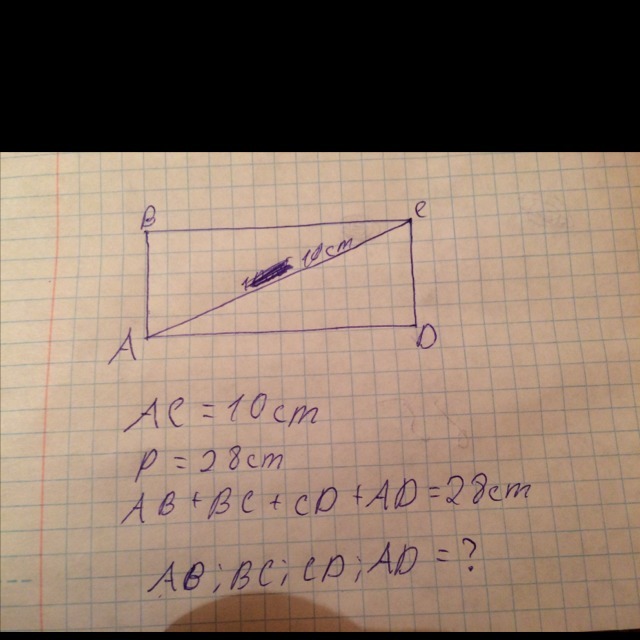 B C
10 cm
A D
AC = 10 cm
P = 28 cm
AB + BC + CD + AD = 28 cm
AB; BC; CD; AD = ?